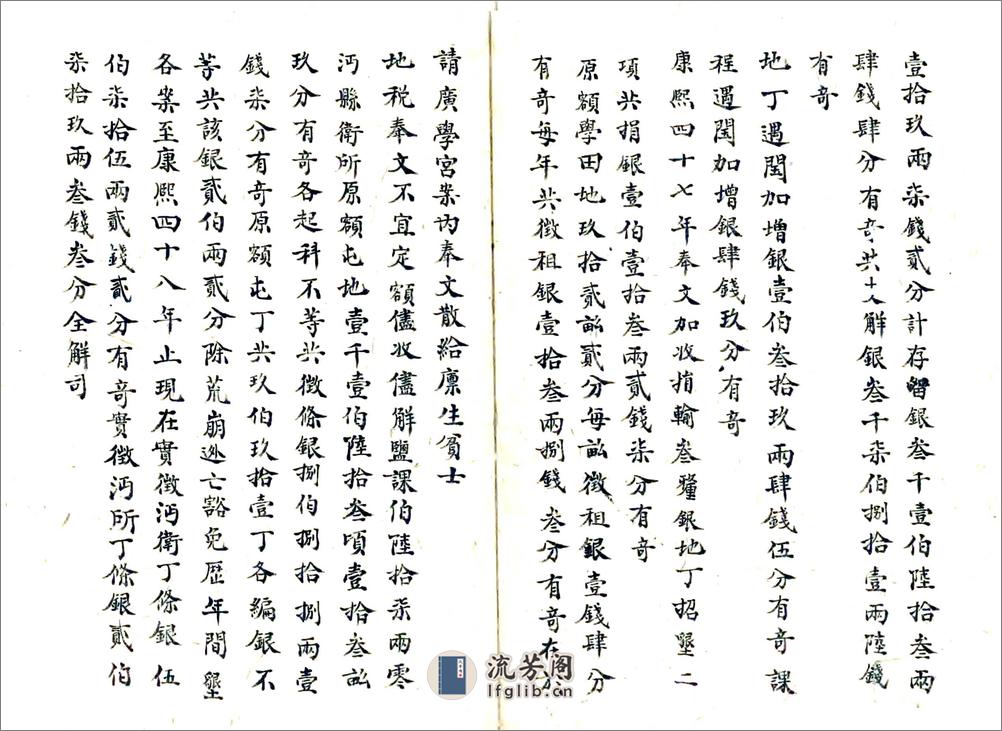 壹拾玖兩柒錢貳分計存留銀叁千壹伯陸拾叁兩
肆錢肆分有奇共十入觧銀叁千柒伯捌拾壹兩陸錢
有奇
地丁遇閏加增銀壹伯叁拾玖兩肆錢伍分有奇課
程遇閏加增銀肆錢玖分有奇
康熙四十七年奉文加收捐輸叁糧銀地丁招墾二
項共捐銀壹伯壹拾叁兩貳錢柒分有奇
原額學田地玖拾貳畝貳分每畝徵租銀壹錢肆分
有奇每年共徵租銀壹拾叁兩捌錢叁分有奇在於
請廣學宮案內奉文散給廪生貧士
地税奉文不宜定額儘收儘解鹽課伯陸拾柒兩零
沔縣衛所原額屯地壹千壹伯陸拾叁頃壹拾叁畝
玖分有奇各起科不等共徵條銀捌伯捌拾捌兩壹
錢柒分有奇原額屯丁共玖伯玖拾壹丁各編銀不
等共該銀貳伯兩貳分除荒崩逃亡豁免歷年開墾
各案至康熙四十八年止現在實徵沔衛丁條銀伍
伯柒拾伍兩貳錢貳分有奇實徵沔所丁條銀貳伯
柒拾玖兩叁錢叁分全觧司
流芳阁
lfglib.cn